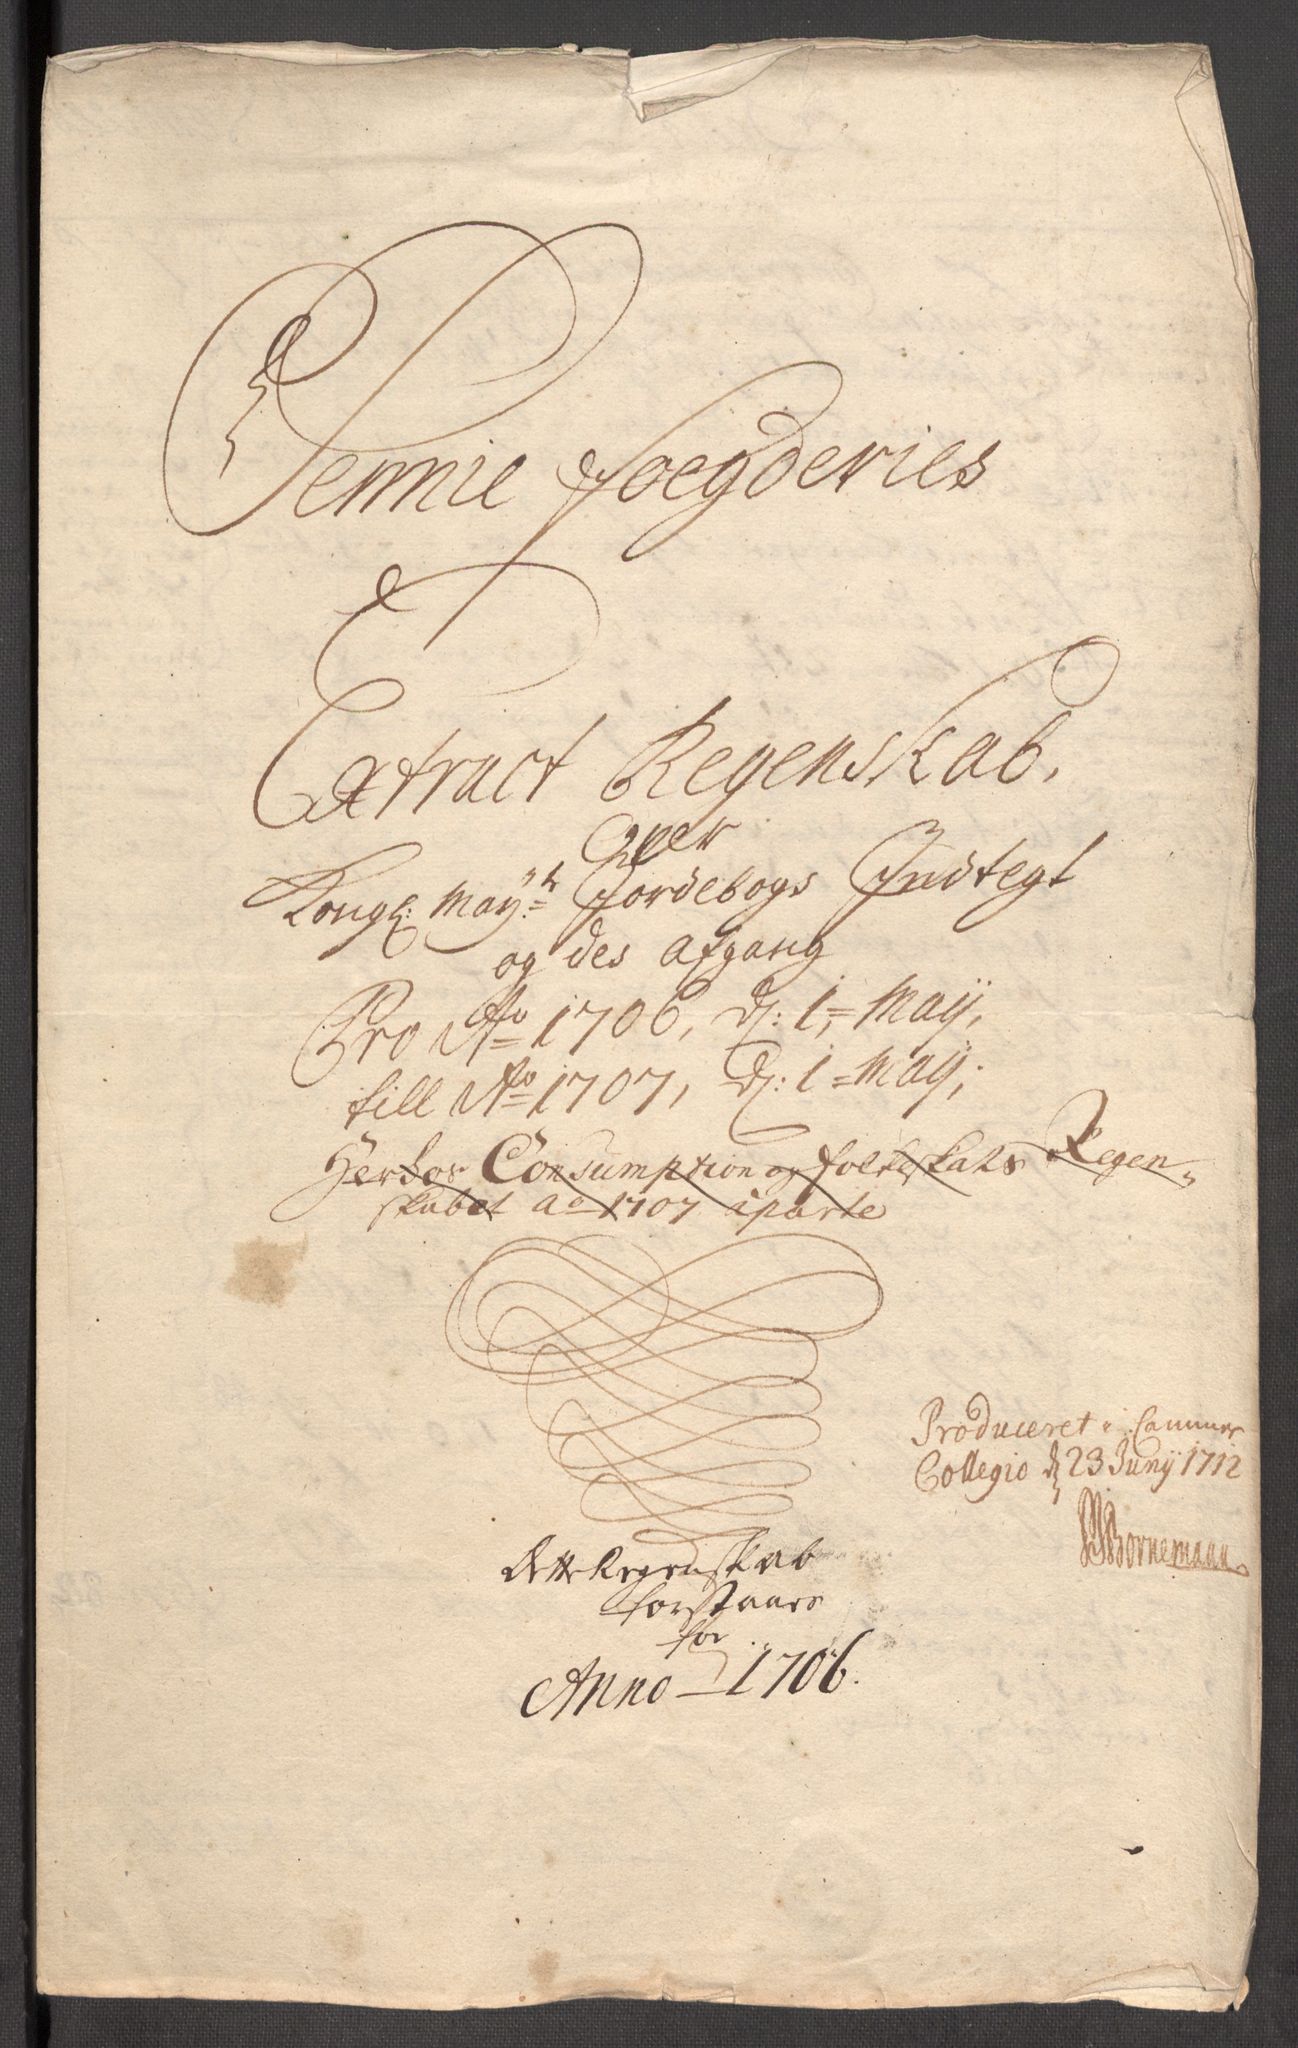 Sennie Foegderies
Extract Regenskab,
Over
Kongl: May:tz Jordebogs Indtegt
og des Afgang
Pro Ao 1706, d: 1 = Maij,
till Ao 1707, d: 1 = Maij;
Herhos Consumption og folkeskats Regen-
skabet Ao 1707 aparte
Produceret i Cammer
Collegio d 23 Junij 1712
Bornemann
Dette Regenskab
forstaaes
for
Anno 1706.